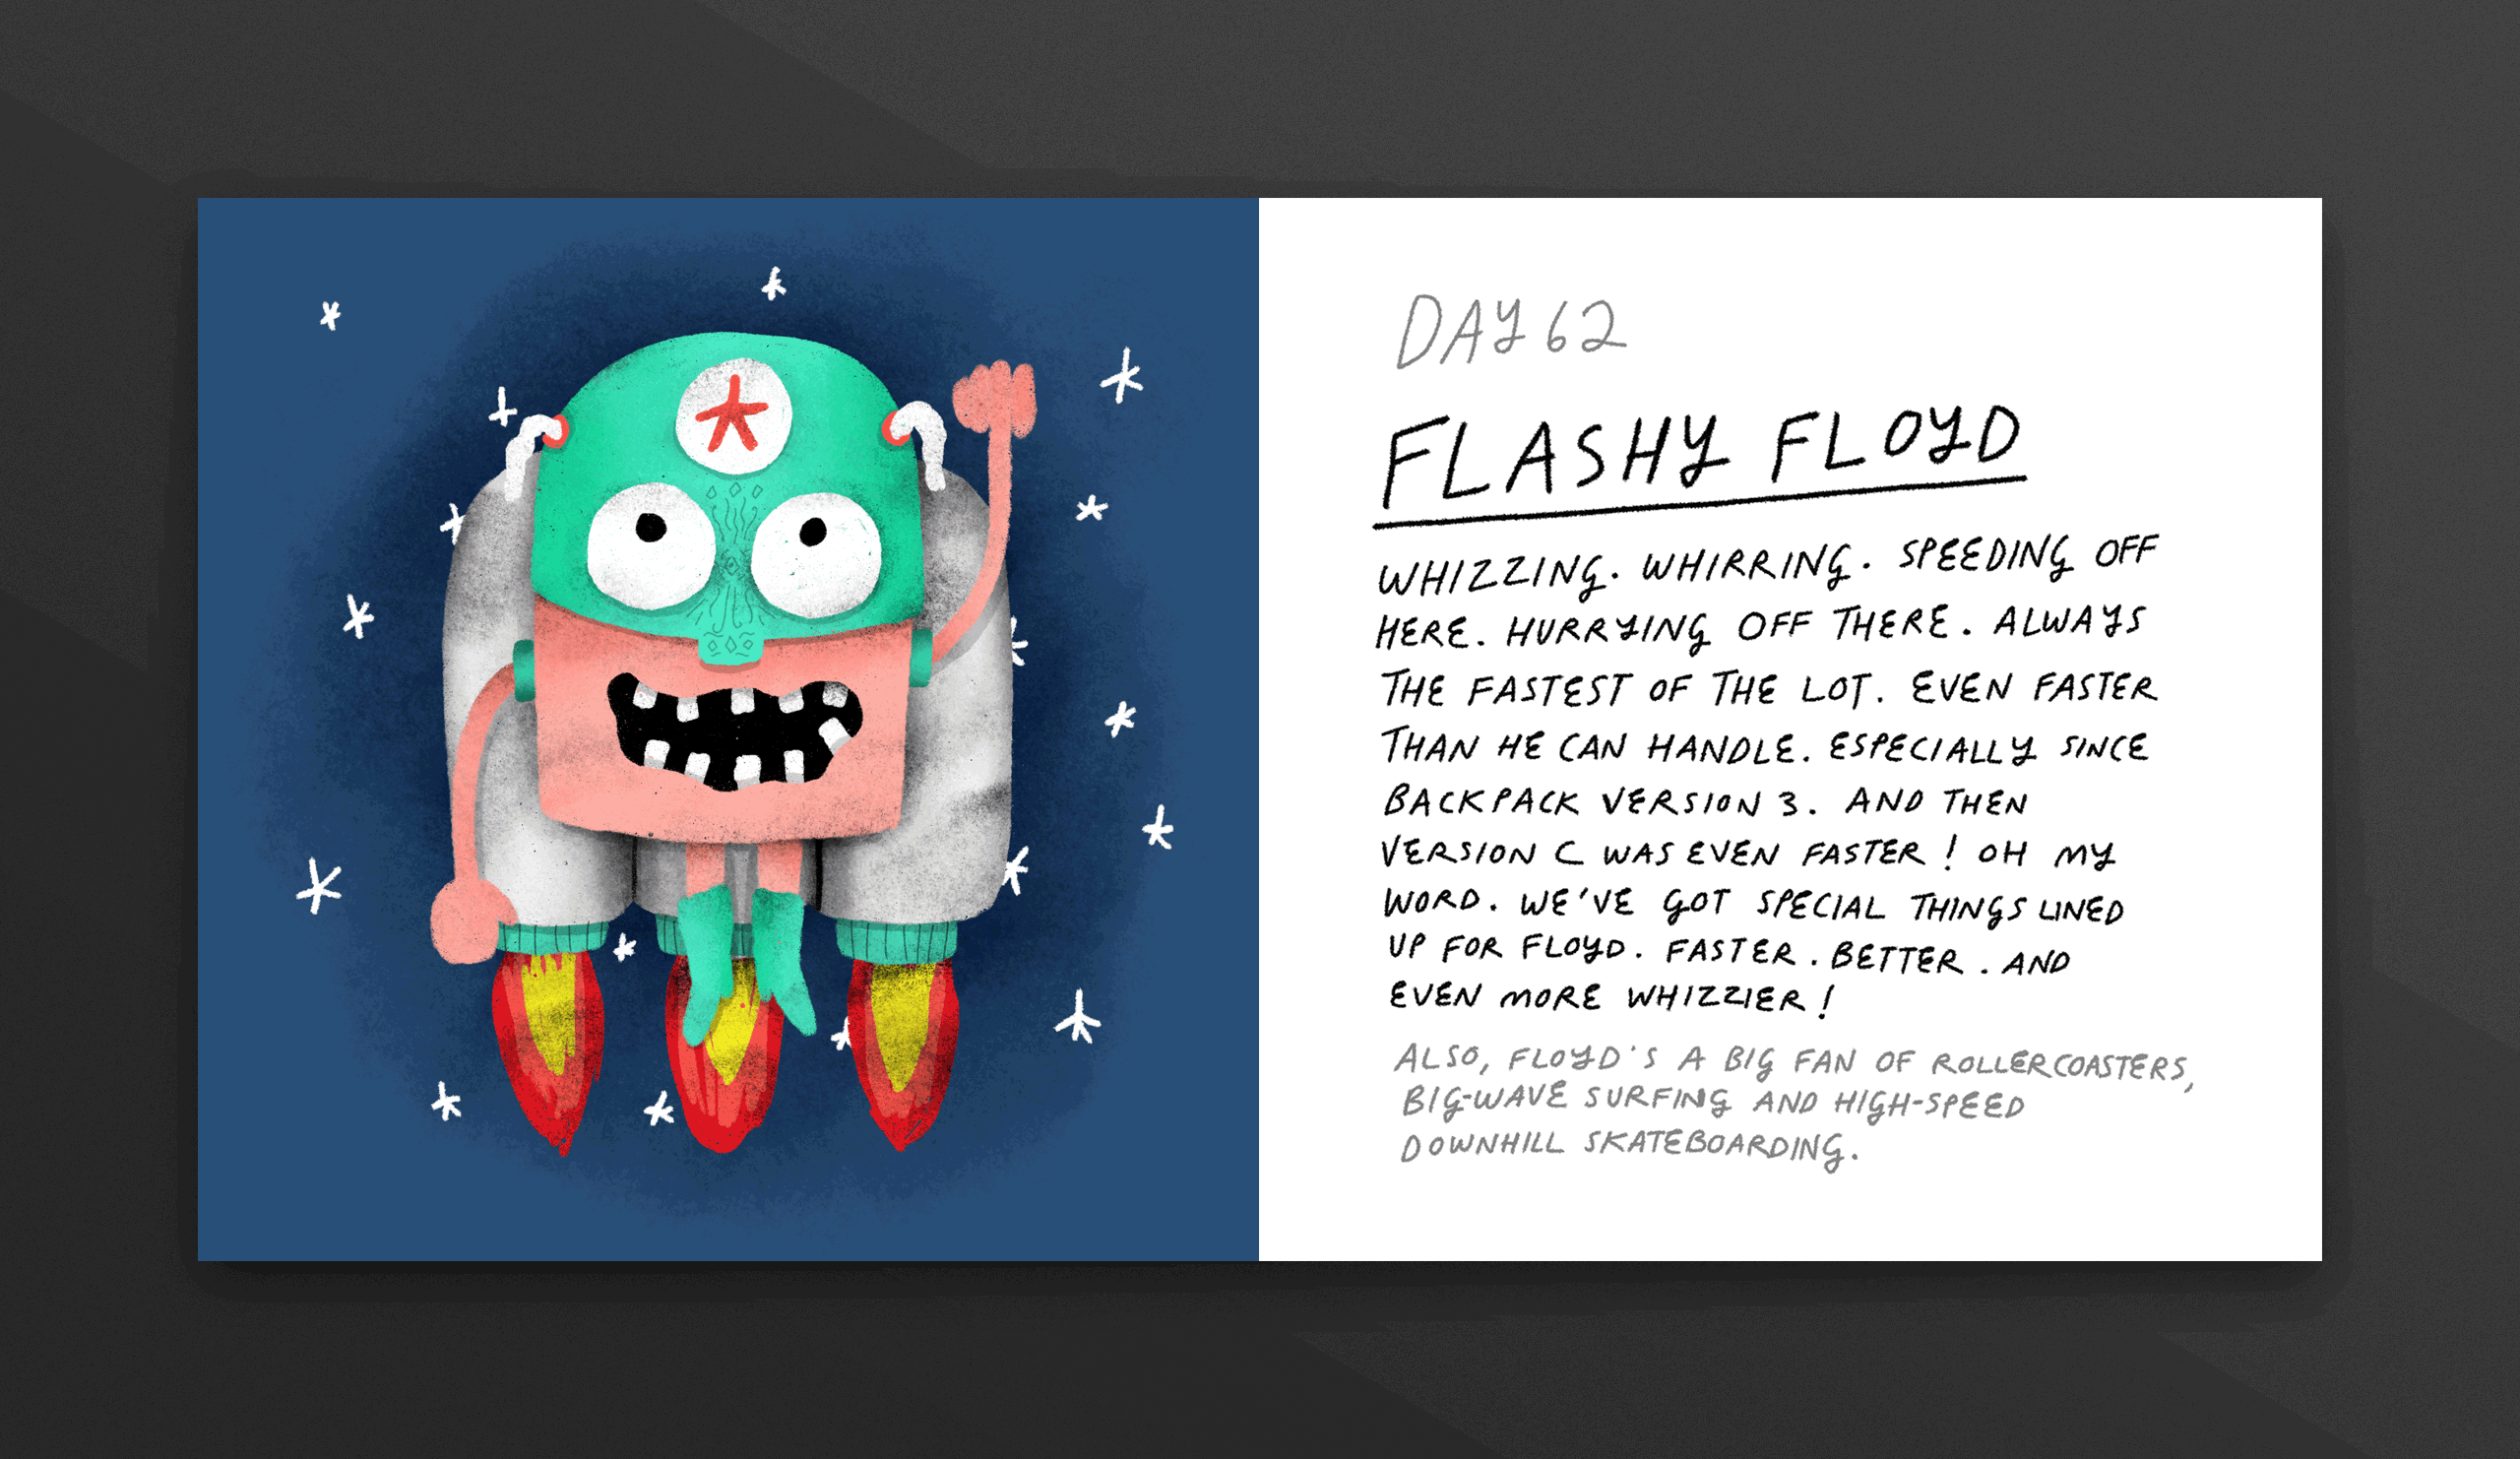 DAY 62
FLASHY FLOYD
WHIZZING. WHIRRING. SPEEDING OFF
HERE. HURRYING OFF THERE. ALWAYS
THE FASTEST OF THE LOT. EVEN FASTER
THAN HE CAN HANDLE. ESPECIALLY SINCE
BACKPACK VERSION 3. AND THEN
VERSION C WAS EVEN FASTER! OH MY
WORD. WE'VE GOT SPECIAL THINGS LINED
UP FOR FLOYD. FASTER. BETTER. AND
EVEN MORE WHIZZIER!
ALSO, FLOYD'S A BIG FAN OF ROLLERCOASTERS,
BIG-WAVE SURFING AND HIGH-SPEED
DOWNHILL SKATEBOARDING.